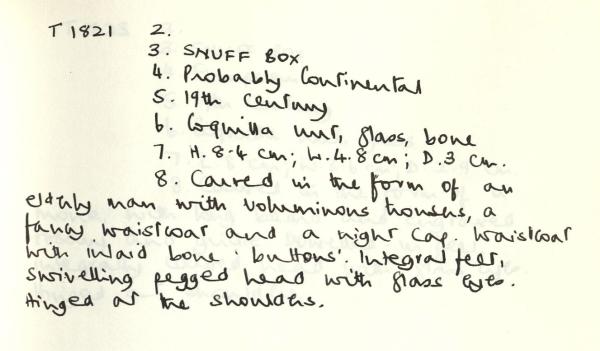 T 1821 2.
3. SNUFF BOX
4. Probably Continental
5. 19th Century
6. Coquilla nut, glass, bone
7. H. 8.4 cm; W. 4.8 cm; D. 3 cm.
8. Carved in the form of an
elderly man with voluminous trousers, a
fancy waistcoat and a night cap. Waistcoat
with inlaid bone 'buttons'. Integral feet,
swivelling pegged head with glass eyes.
Hinged at the shoulders.